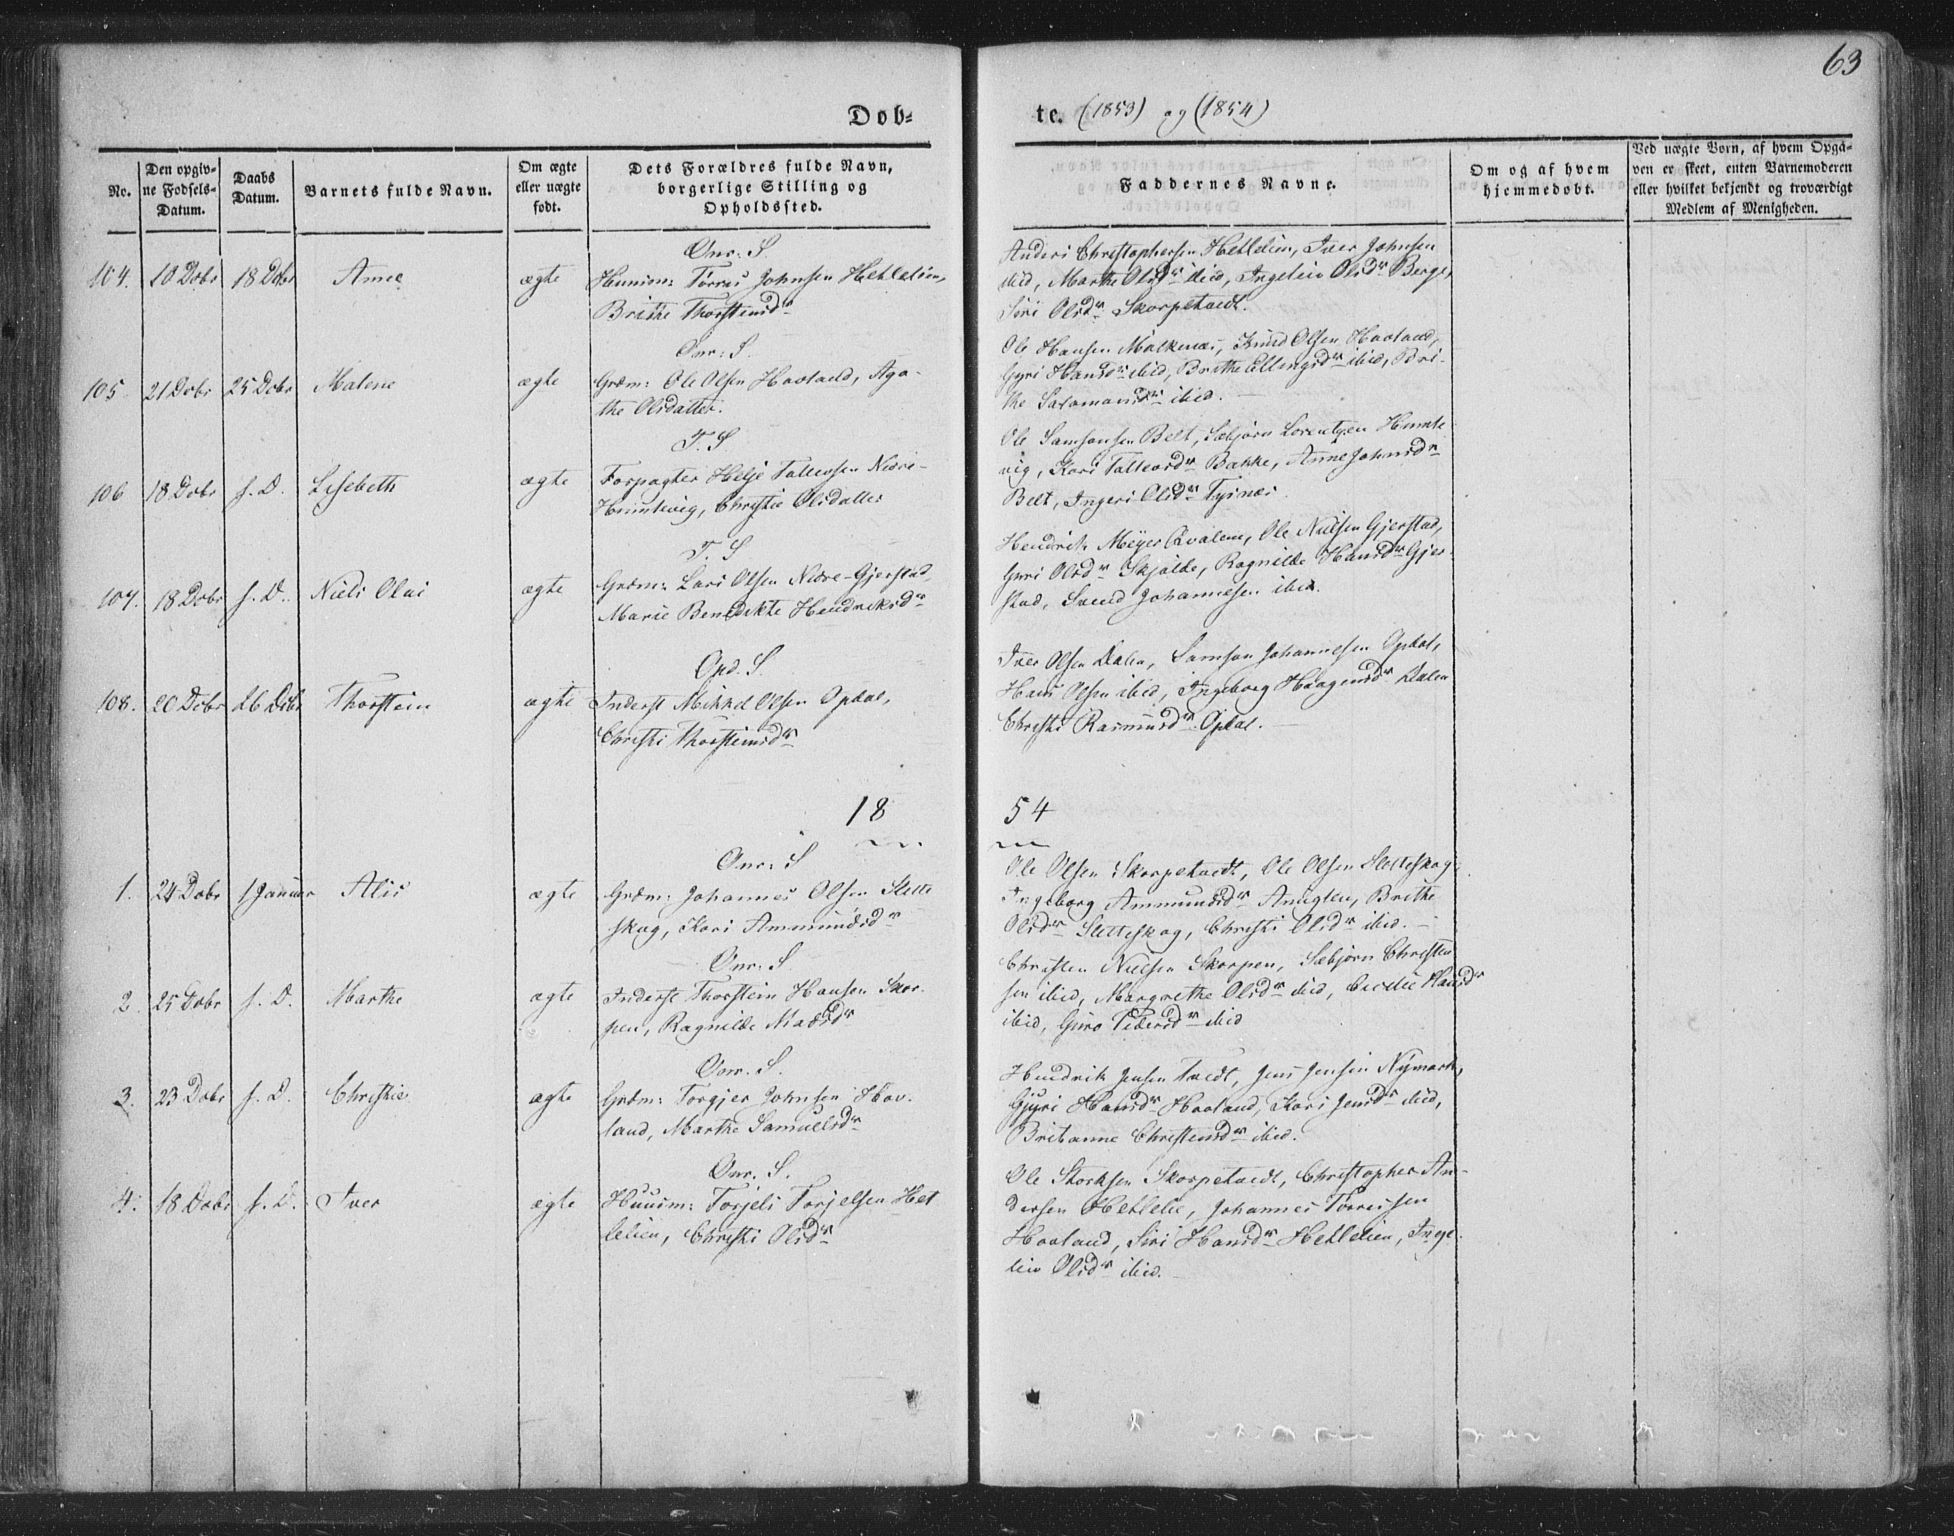 63
Døb-
te. (1853) og (1854)
No.
Den opgiv-
ne Fødsels-
Datum.
Daabs
Datum.
Barnets fulde Navn.
Om ægte
eller uægte
født.
Dets Forældres fulde Navn,
borgerlige Stilling og
Opholdssted.
Faddernes Navne.
Om og af hvem
hjemmedøbt.
Ved uægte Børn, af hvem Opgi-
ven er skeet, enten Barnemoderen
eller hvilket bekjendt og troværdigt
Medlem af Menigheden.
Onr: S.
104. 10 Dcbr 18 Dcbr Anne ægte Huusm: Tørres Johnsen Hetleliien,
Brithe Thorsteinsdr
Anders Christophersen Hetleliien, Iver Johnsen
ibid, Marthe Olsdr ibid, Ingeleiv Olsdr Berge,
Siri Olsdr Skorpetvedt.
Onr: S.
105. 21 Dcbr 25 Dcbr Malene ægte Grdm: Ole Olsen Haaland, Aga-
the Olsdatter.
Ole Hansen Malkenæs, Knud Olsen Haaland,
Gyri Hansdr ibid, Brithe Ellingsdr ibid, Bri-
the Salamonsdr ibid.
T. S
106 18 Dcbr s. D. Lisebeth ægte Forpagter Helje Tollevsen Nedre-
Humlevig, Christie Olsdatter
Ole Samsonsen Belt, Sæbjørn Lorentzen Humle
vig, Kari Tollevsdr Bakke, Anne Johnsdr
Belt, Ingeri Olsdr Tysnæs.
T. S
107. 18 Dcbr s. D. Niels Olai ægte Grdm: Lars Olsen Nedre-Gjerstad,
Marie Benedikte Hendriksdr
Hendrik Meyer Qvalen, Ole Nielsen Gjerstad,
Guri Olsdr Skjolde, Ragnilde Hansdr Gjer
stad, Svend Johannesen ibid.
Opd. S.
108. 20 Dcbr 26 Dcbr Thorstein ægte Inderst Mikkel Olsen Opdal,
Christi Thorsteinsdr
Iver Olsen Dalen, Samson Johannesen Opdal,
Hans Olsen ibid, Ingeborg Haagensdr Dalen
Christi Rasmusdr Opdal.
18 54
Onr: S
1. 24 Dcbr 1 Januar Alis ægte Grdm: Johannes Olsen Slette
skog, Kari Ammundsdr
Ole Olsen Skorpetvedt, Ole Olsen Sletteskog
Ingeborg Ammundsdr Brithe
Olsdr Sletteskog, Christi Olsdr ibid.
Onr: S.
2. 25 Dcbr s. D. Marthe ægte Inderst Thorstein Hansen Skor-
pen, Ragnilde Madsdr
Christen Nielsen Skorpen, Sæbjørn Christen
sen ibid, Margrethe Olsdr ibid, Cecilie Hansdr
ibid, Guro Pedersdr ibid
Onr. S.
3. 23 Dcbr s. D. Christie ægte Grdm: Torgjer Johnsen Haa-
land, Marthe Samuelsdr
Hendrik Jensen Tvedt, Jens Jensen Nymark,
Gjyri Hansdr Haaland, Kari Jensdr ibid,
Britanne Christensdr ibid.
Onr. S.
4. 18 Dcbr s. D. Iver ægte Huusm: Torjels Torjelsen Het
leliien, Christi Olsdr
Ole Storksen Skorpetvedt, Christopher An-
dersen Hetlelie, Johannes Tørresen
Haaland, Siri Hansdr Hetleliien, Inge
leiv Olsdr ibid.